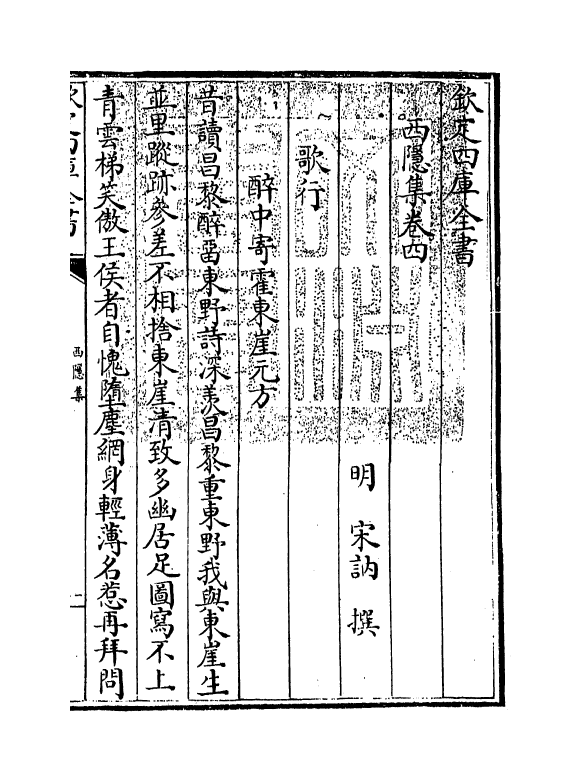 欽定四庫全書
西隱集卷四
明 宋訥 撰
歌行
醉中寄霍東崖元方
昔讀昌黎醉畱東野詩深羡昌黎重東野我與東崖生
並里蹤跡參差不相捨東崖清致多幽居足圖寫不上
青雲梯笑傲王侯者自愧墮塵網身輕薄名惹再拜問
西隱集